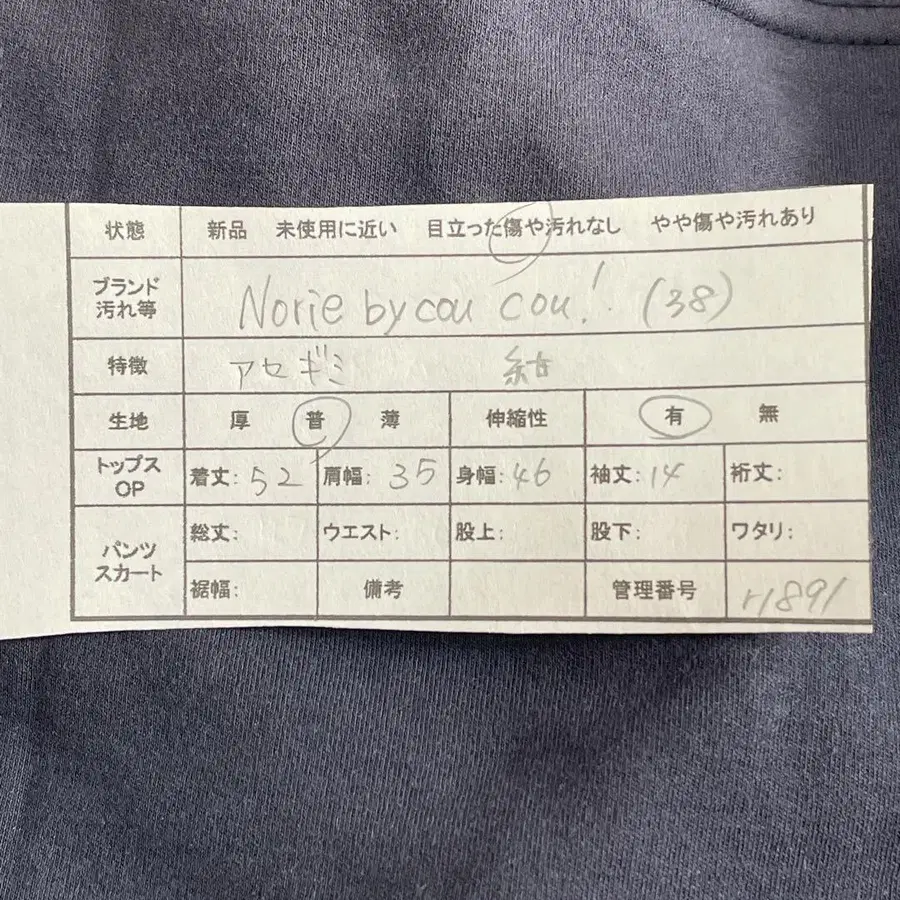 状態 新品 未使用に近い 目立った傷や汚れなし やや傷や汚れあり
ブランド
汚れ等
Norie by cou cou! (38)
特徴 アセギミ 紺
生地 厚 普 薄 伸縮性 有 無
トップス
OP
着丈: 52 肩幅: 35 身幅: 46 袖丈: 14 裄丈:
パンツ
スカート
総丈: ウエスト: 股上: 股下: ワタリ:
裾幅: 備考 管理番号 r1891